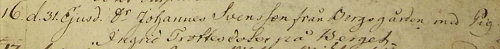 16 d. 31. Ejusd. Dr Johannes Svensson från Borgegården med Pig.
Ingrid Trottsdoter på Berget.